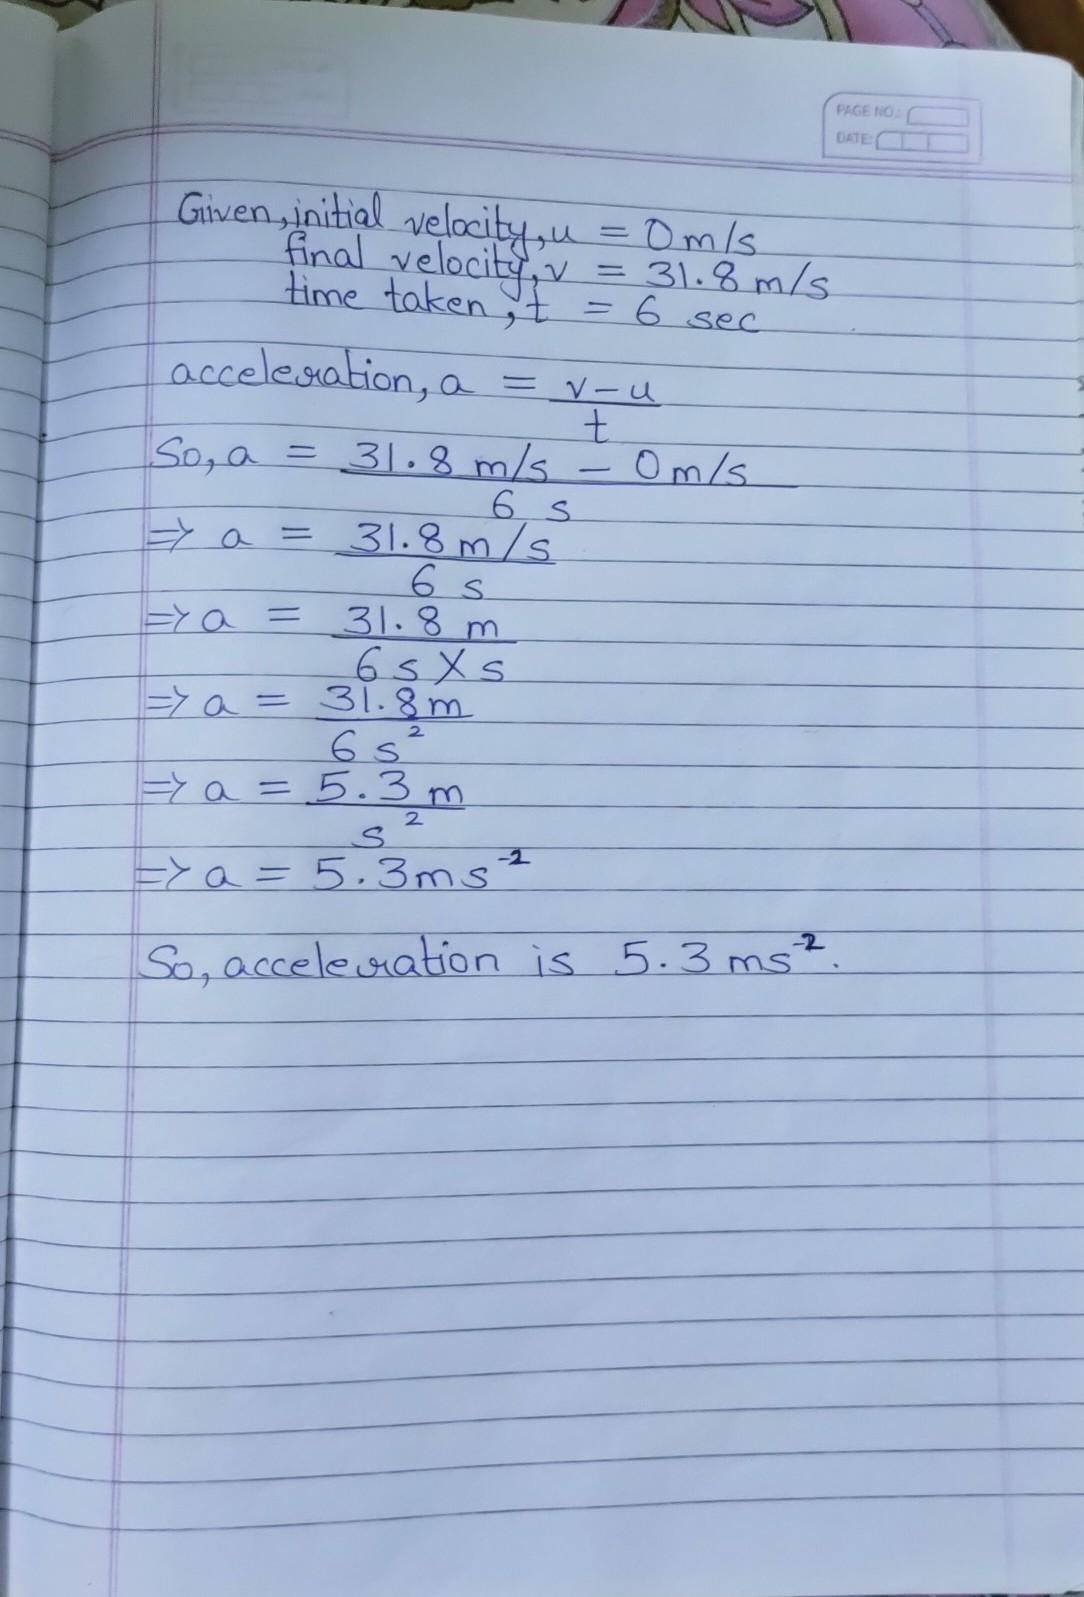 PAGE NO.:
DATE:
Given, initial velocity, u = 0 m/s
final velocity, v = 31.8 m/s
time taken, t = 6 sec
acceleration, a = v-u
t
So, a = 31.8 m/s - 0 m/s
6 s
⇒ a = 31.8 m/s
6 s
⇒ a = 31.8 m
6 s X s
⇒ a = 31.8 m
6 s²
⇒ a = 5.3 m
s²
⇒ a = 5.3 ms⁻²
So, acceleration is 5.3 ms⁻².